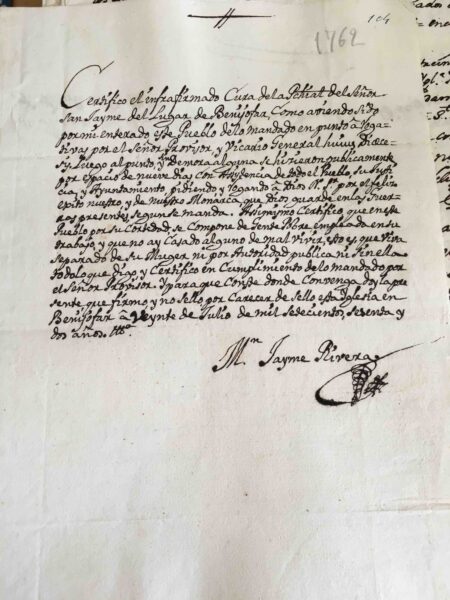 104
1762
Certifico el infrafirmado Cura de la Parroql. del Señor
San Jayme del Lugar de Benisofar, Como aviendo sido
por mi enterado este Pueblo de lo mandado en punto a Roga-
tivas por el Señor Provisor y Vicario General
luego al punto demora alguna se hicieron publicamente
por espacio de nueve dias con Assistencia de todo el Pueblo, su Justi-
cia, y Ayuntamiento, pidiendo y rogando a Dios N. Sr. por el feliz
exito nuestro y de nuestro Monarca, que Dios guarde en las Guer-
ras presentes segun se manda. Assimismo Certifico que en este
Pueblo por su Cortedad, se compone de Gente Pobre empleada en su
trabajo, y que no ay Casado alguno de mal vivir, esto es, que viva
separado de su Muger ni por Autoridad publica ni sin ella
todo lo que digo y Certifico en Cumplimiento de lo mandado por
el Señor Provisor. Y para que Conste donde Convenga doy la pre-
sente que firmo y no sello por Carecer de Sello esta Iglesia en
Benisofar a veynte de Julio de mil setecientos, sesenta y
dos años.
Mn. Jayme Rivera